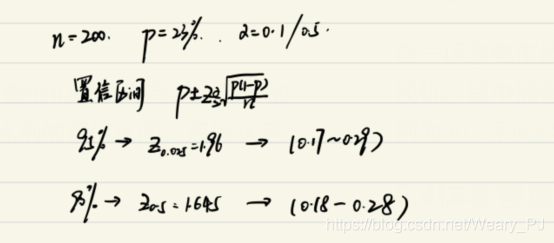 n=200. p=23%. α=0.1/0.5.
置信区间 p±z_{α/2}√(p(1-p)/n)
95% → z_{0.025}=1.96 → (0.17~0.29)
90% → z_{0.5}=1.645 → (0.18-0.28)
https://blog.csdn.net/Weary_PJ